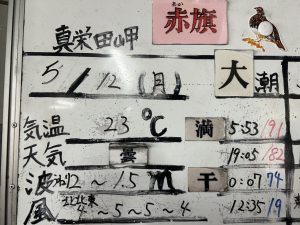 真栄田岬 赤旗
5/12(月) 大潮
気温 23℃ 満 5:53/191
天気 曇 19:05/182
波 うねり2〜1.5m 干 0:07/74
風 北北東 4〜5〜5〜4 12:35/19